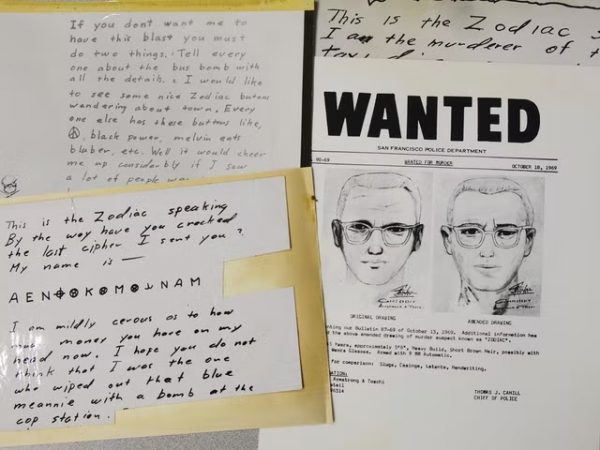 If you dont want me to
have this blast you must
do two things. Tell every
one about the bus bomb with
all the details. 2 I would like
to see some nice Zodiac butons
wandering about town. Every
one else has these buttons like,
☮, black power, melvin eats
blaber, etc. Well it would cheer
me up considerbly if I saw
a lot of people
This is the Zodiac speaking
By the way have you cracked
the last cipher I sent you?
My name is —
A E N ⊕ K M N A M
I am mildly cerous as to how
much money you have on my
head now. I hope you do not
think that I was the one
who wiped out that blue
meannie with a bomb at the
cop station.
This is the Zodiac
I am the murderer of the
WANTED
SAN FRANCISCO POLICE DEPARTMENT
90-69 WANTED FOR MURDER OCTOBER 18, 1969
ORIGINAL DRAWING AMENDED DRAWING
our Bulletin 87-69 of October 13, 1969. Additional information has
the above amended drawing of murder suspect known as "ZODIAC".
Years, Heavy Build, Short Brown Hair, possibly with
Glasses. Armed with 9 MM Automatic.
for comparison: Slugs, Casings, Latents, Handwriting.
Armstrong & Toschi
THOMAS J. CAHILL
CHIEF OF POLICE